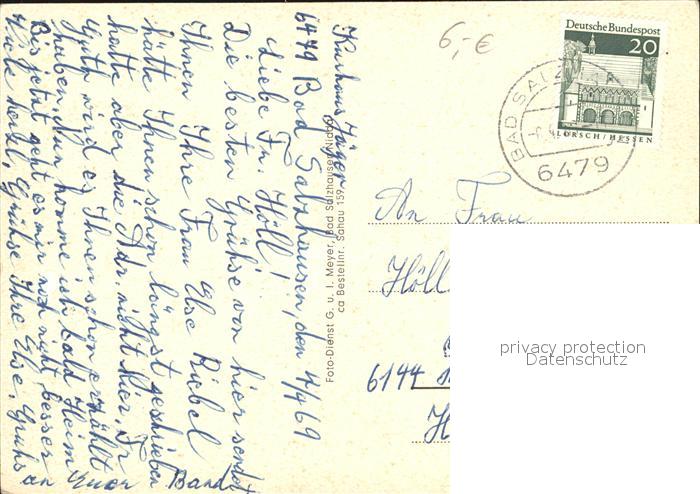 Kurhaus Jäger
6479 Bad Salzhausen, den 4/9 69
Liebe Fr. Höll!
Die besten Grüße von hier sendet
Ihnen Ihre Frau Else Riebel
hätte Ihnen schon längst geschrieben
hatte aber die Adr. nicht hier. Fr.
Guth wird es Ihnen schon erzählt
haben, nun komme ich bald Heim
Bis jetzt geht es mir noch nicht besser
Viele herzl. Grühse Ihre Else, Gruhs an
Band
Foto-Dienst G. u. I. Meyer, Bad Salzhausen-Nidda
ca Bestellnr. Sahau 159
6,-€
Deutsche Bundespost
20
LORSCH/HESSEN
BAD SALZ
6479
An Frau
Höll
6144
H
privacy protection
Datenschutz